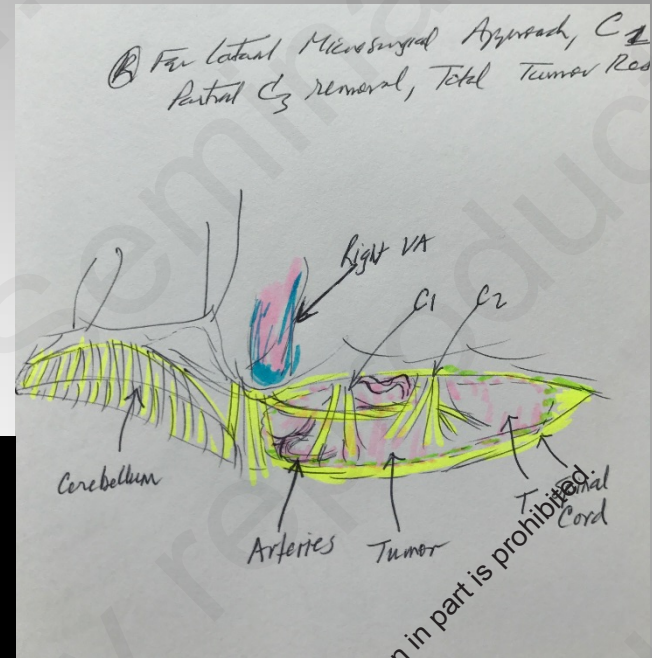 Ⓡ Far Lateral Microsurgical Approach, C1
Partial C3 removal, Total Tumor Res
Right VA
C1
C2
Cerebellum
Arteries
Tumor
T.
Spinal
Cord
n in part is prohibited.